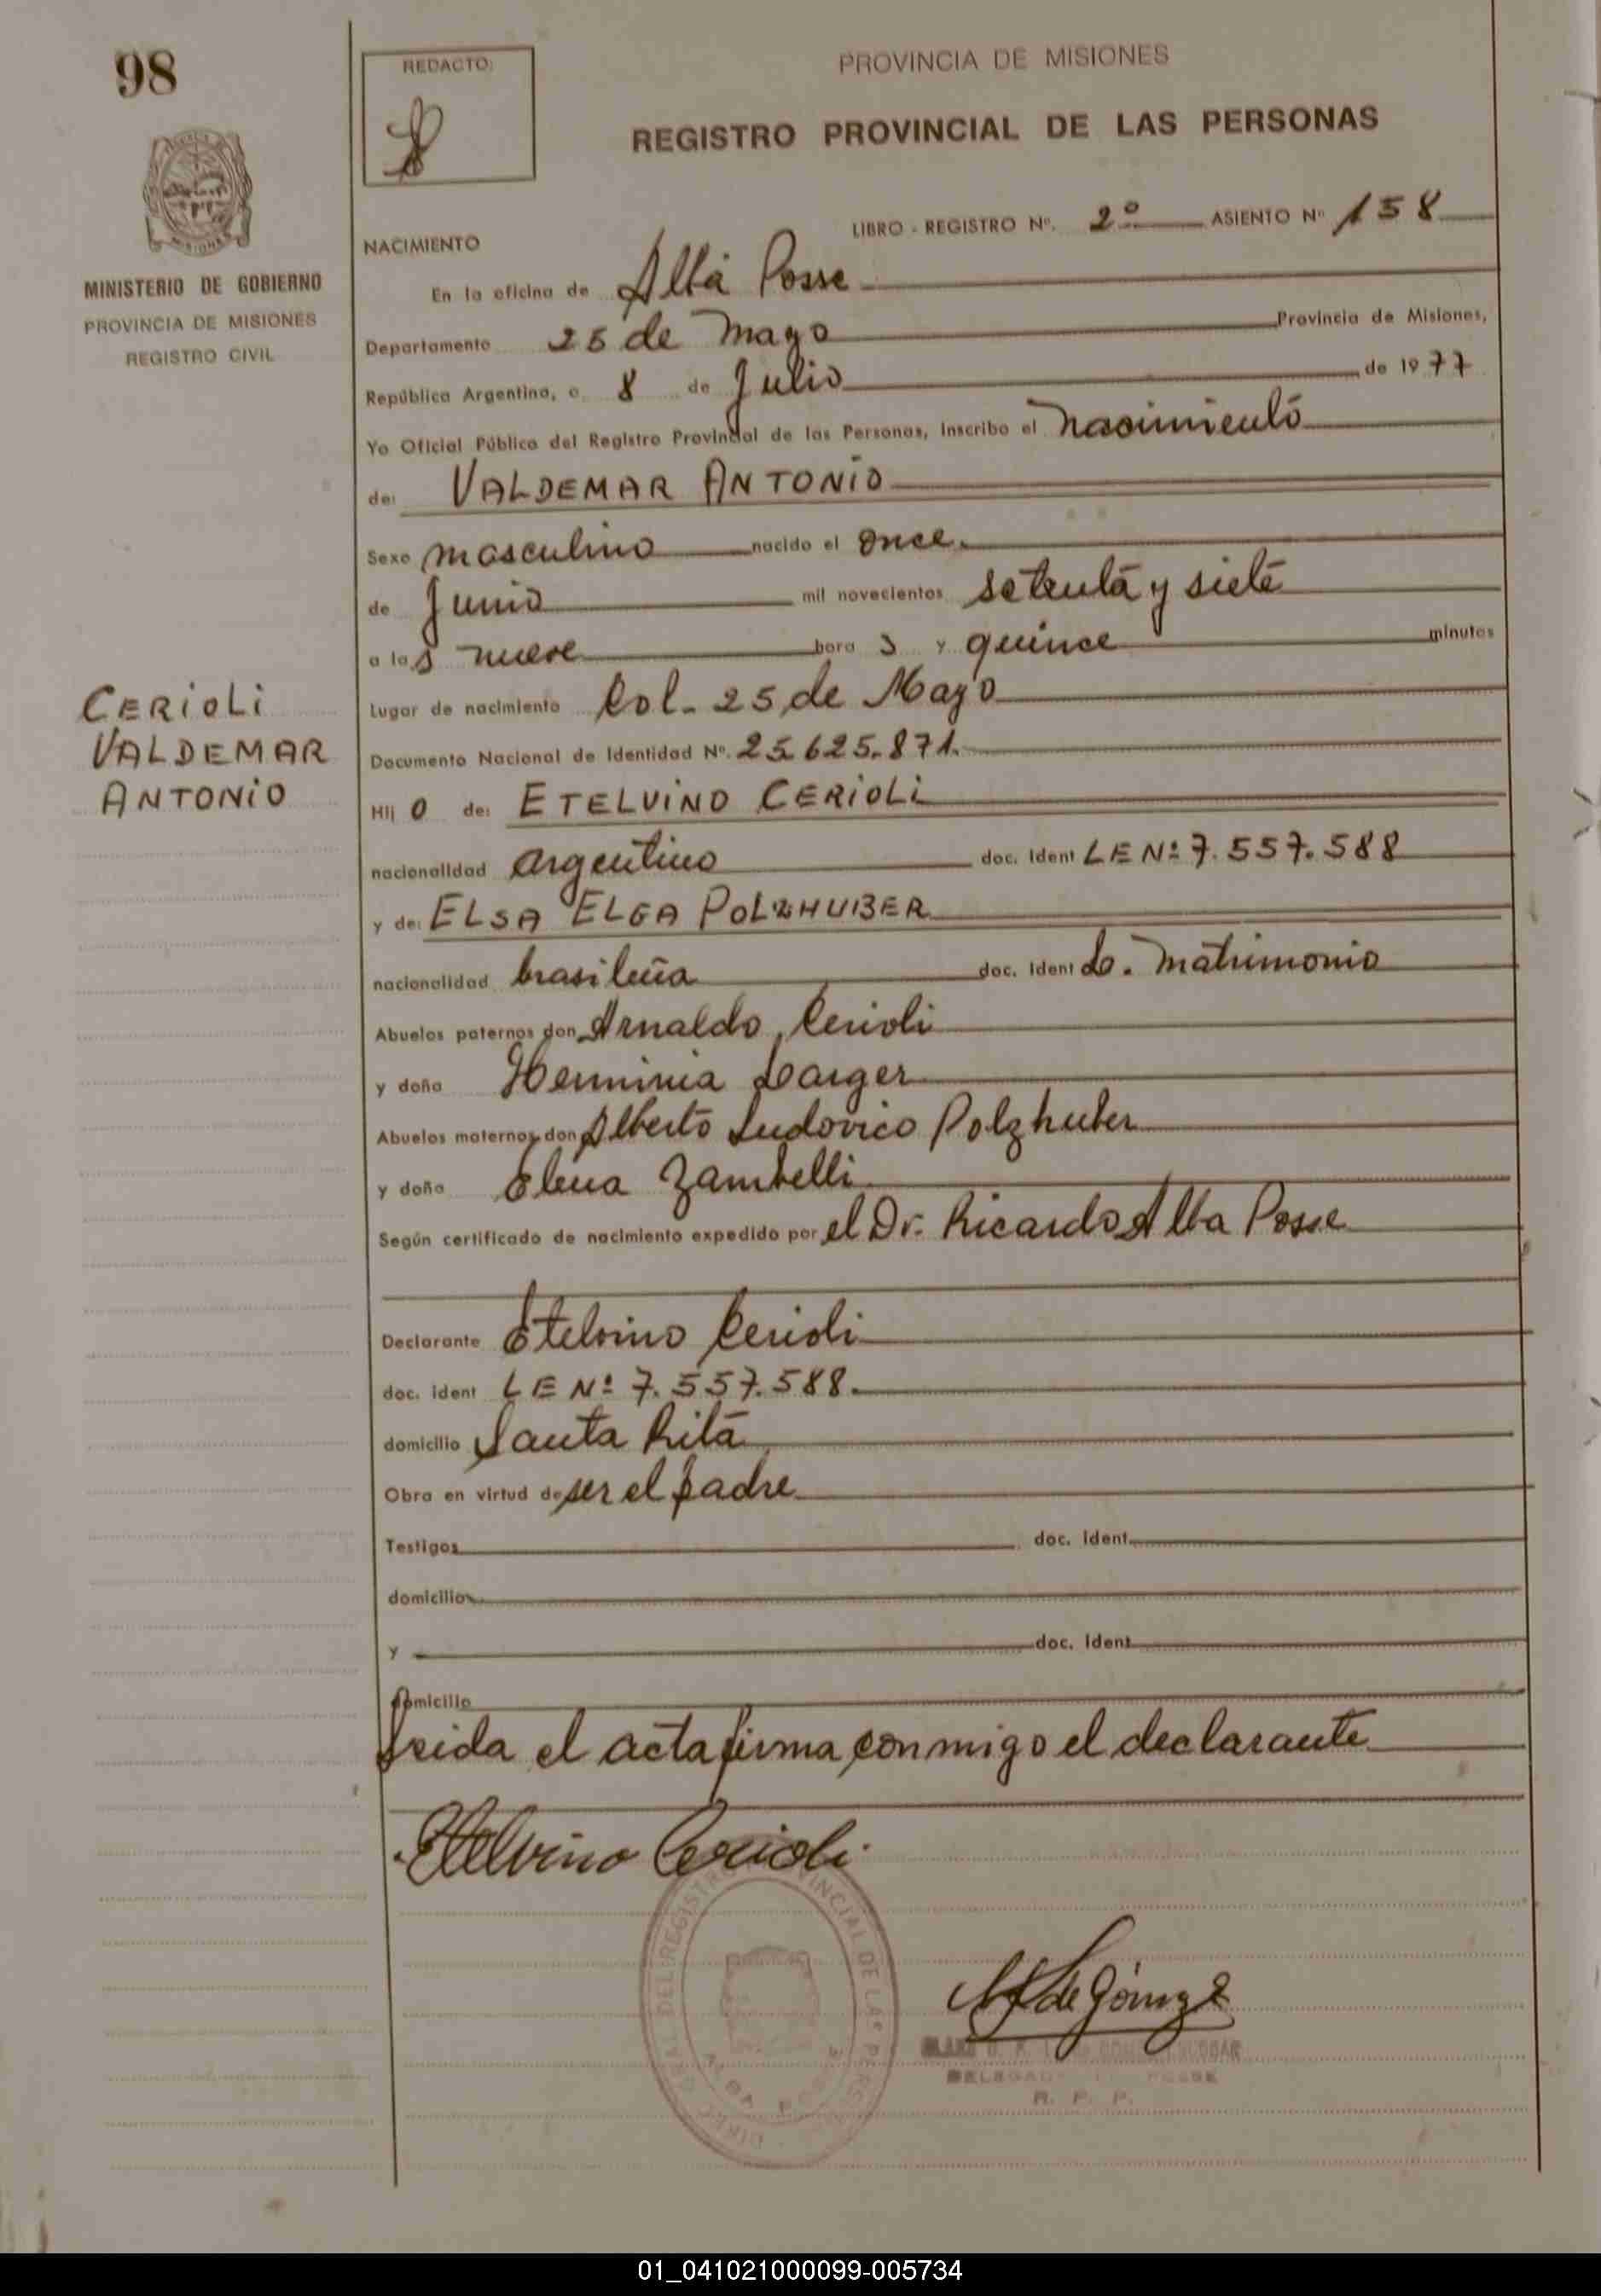 98
REDACTO:
PROVINCIA DE MISIONES
REGISTRO PROVINCIAL DE LAS PERSONAS
LIBRO - REGISTRO Nº. 2º ASIENTO Nº 158
MINISTERIO DE GOBIERNO
PROVINCIA DE MISIONES
REGISTRO CIVIL
NACIMIENTO
En la oficina de Alba Posse
Departamento 25 de Mayo Provincia de Misiones,
República Argentina, a 8 de Julio de 1977
Yo Oficial Público del Registro Provincial de las Personas, inscribo el nacimiento
de: VALDEMAR ANTONIO
Sexo masculino nacido el once
de Junio mil novecientos setenta y siete
a las nueve hora s y quince minutos
CERIOLI
VALDEMAR
ANTONIO
Lugar de nacimiento Col. 25 de Mayo
Documento Nacional de Identidad Nº. 25.625.871.
Hij o de: ETELVINO CERIOLI
nacionalidad argentino doc. Ident LE Nº 7.557.588
y de: ELSA ELGA POLZHUBER
nacionalidad brasileña doc. Ident L. Matrimonio
Abuelos paternos don Arnaldo Cerioli
y doña Herminia Larger
Abuelos maternos don Alberto Ludovico Polzhuber
y doña Elena Zambelli
Según certificado de nacimiento expedido por el Dr. Ricardo Alba Posse
Declarante Etelvino Cerioli
doc. ident LE Nº 7.557.588.
domicilio Santa Rita
Obra en virtud de ser el padre
Testigos doc. ident.
domicilio
y doc. Ident
domicilio
Leida el acta firma conmigo el declarante
Etelvino Cerioli
DIREC GRAL DEL REGISTRO PROVINCIAL DE LAS PERS
ALBA POSSE
de Gómez
DELEGAD POSSE
R. P. P.
01_041021000099-005734